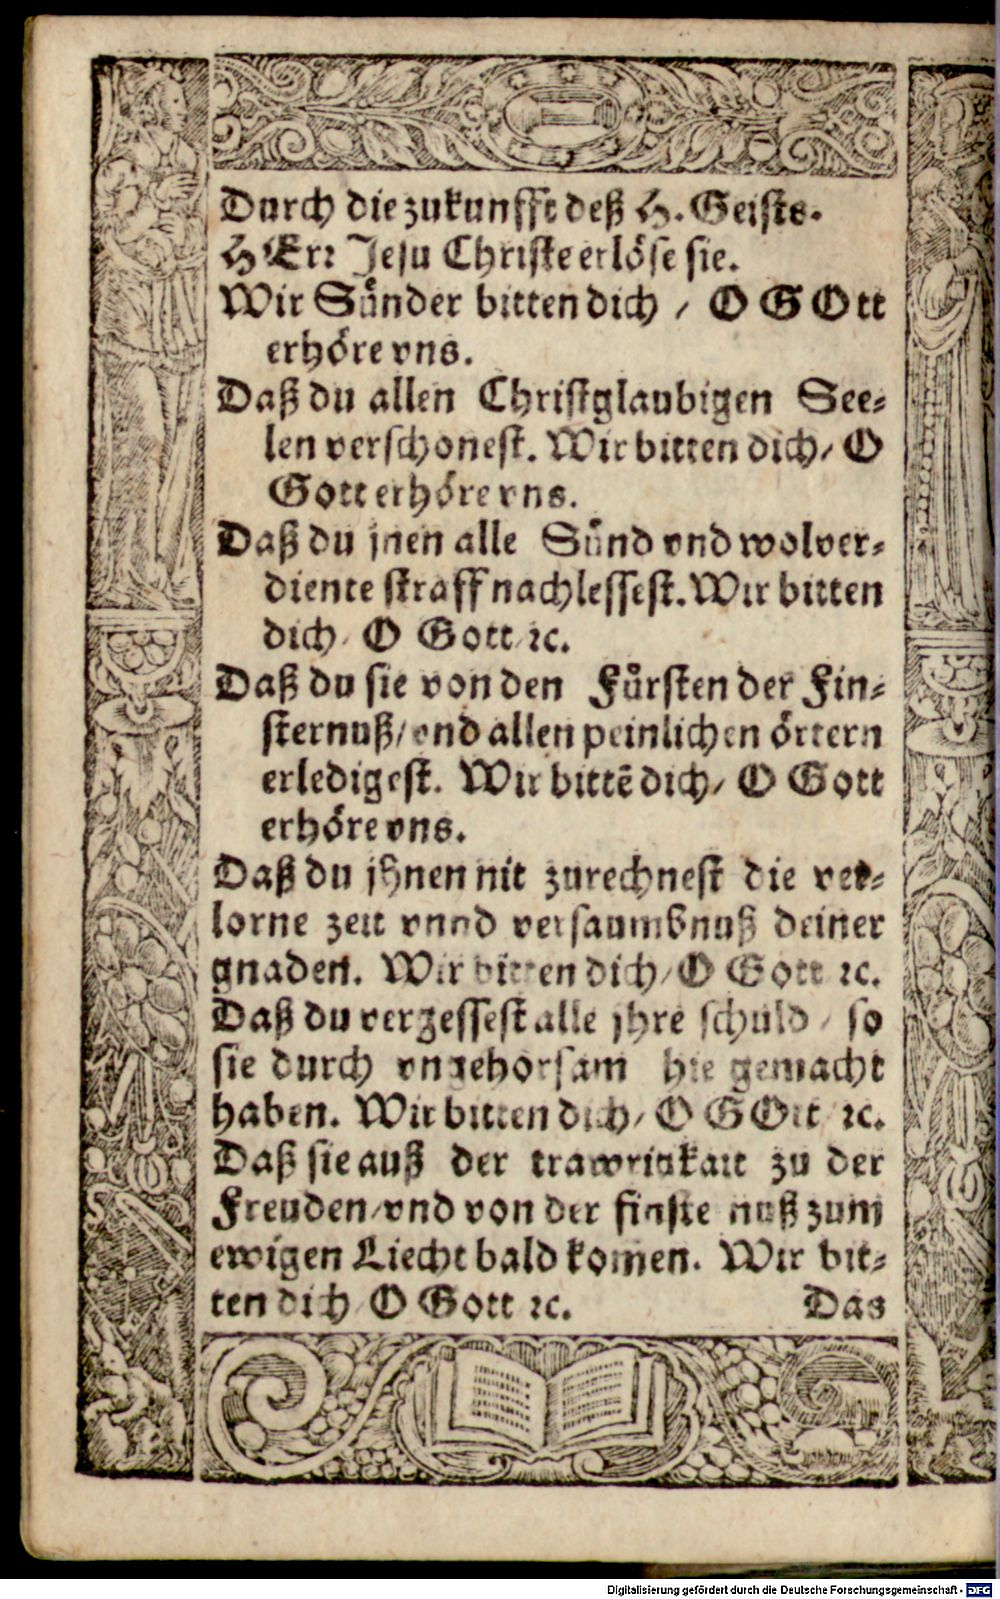 Durch die zukunfft deß H. Geists.
HErr Jesu Christe erlöse sie.
Wir Sünder bitten dich / O GOtt
erhöre vns.
Daß du allen Christglaubigen See-
len verschonest. Wir bitten dich / O
Gott erhöre vns.
Daß du jnen alle Sünd vnd wolver-
diente straff nachlessest. Wir bitten
dich / O Gott / ꝛc.
Daß du sie von den Fürsten der Fin-
sternuß / vnd allen peinlichen örtern
erledigest. Wir bittē dich / O Gott
erhöre vns.
Daß du jhnen nit zurechnest die ver-
lorne zeit vnnd versaumbnuß deiner
gnaden. Wir bitten dich / O Gott ꝛc.
Daß du vergessest alle jhre schuld / so
sie durch vngehorsam hie gemacht
haben. Wir bitten dich / O GOtt ꝛc.
Daß sie auß der trawrigkait zu der
Freuden / vnd von der finsternuß zum
ewigen Liecht bald komen. Wir bit-
ten dich / O Gott ꝛc. Das
Digitalisierung gefördert durch die Deutsche Forschungsgemeinschaft - DFG